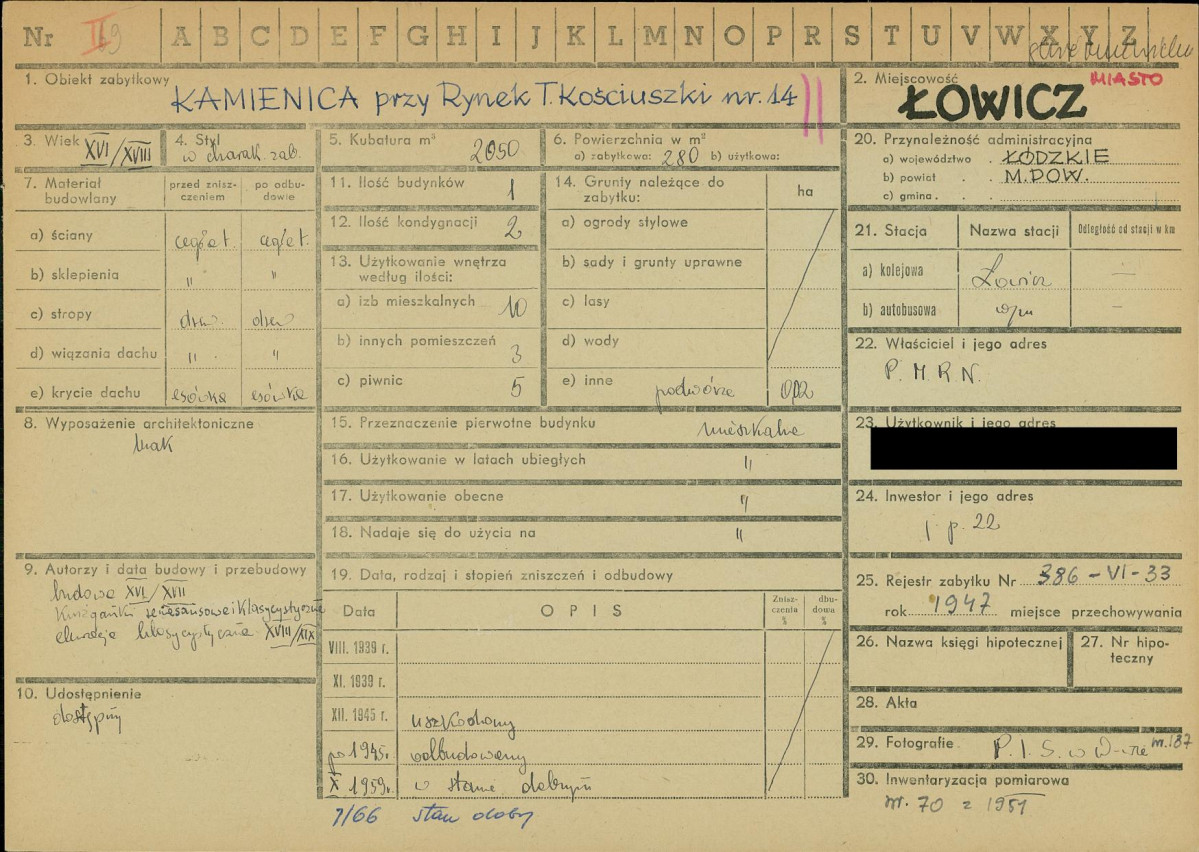 Nr II 69 A B C D E F G H I J K L M N O P R S T U V W X Y Z
1. Obiekt zabytkowy
KAMIENICA przy Rynek T. Kościuszki nr. 14
2. Miejscowość MIASTO
ŁOWICZ
3. Wiek XVI/XVIII
4. Styl
w charak. zab.
5. Kubatura m³ 2050
6. Powierzchnia w m²
a) zabytkowa: 280 b) użytkowa:
7. Materiał budowlany
przed zniszczeniem
po odbudowie
a) ściany cegła t. cegła t.
b) sklepienia " "
c) stropy drew. drew
d) wiązania dachu " "
e) krycie dachu esówka esówka
8. Wyposażenie architektoniczne
brak
9. Autorzy i data budowy i przebudowy
budowa XVI/XVII
renesansowe i klasycystyczne
elewacje klasycystyczne XVIII/XIX
10. Udostępnienie
dostępny
11. Ilość budynków 1
12. Ilość kondygnacji 2
13. Użytkowanie wnętrza
według ilości:
a) izb mieszkalnych 10
b) innych pomieszczeń 3
c) piwnic 5
14. Grunty należące do
zabytku:
ha
a) ogrody stylowe
b) sady i grunty uprawne
c) lasy
d) wody
e) inne podwórze 0,02
15. Przeznaczenie pierwotne budynku mieszkalne
16. Użytkowanie w latach ubiegłych "
17. Użytkowanie obecne "
18. Nadaje się do użycia na "
19. Data, rodzaj i stopień zniszczeń i odbudowy
Data OPIS Zniszczenia % dbudowa %
VIII. 1939 r.
XI. 1939 r.
XII. 1945 r. uszkodzony
po 1945r. odbudowany
X 1959r. w stanie dobrym
7/66 stan dobry
20. Przynależność administracyjna
a) województwo . ŁÓDZKIE
b) powiat . . M.POW.
c) gmina . . .
21. Stacja Nazwa stacji Odległość od stacji w km
a) kolejowa Łowicz —
b) autobusowa —
22. Właściciel i jego adres
P. M. R. N.
23. Użytkownik i jego adres
24. Inwestor i jego adres
j p. 22
25. Rejestr zabytku Nr 386-VI-33
rok 1947 miejsce przechowywania
26. Nazwa księgi hipotecznej
27. Nr hipoteczny
28. Akta
29. Fotografie P. I. S. w W-wie
30. Inwentaryzacja pomiarowa
nr. 70 z 1951